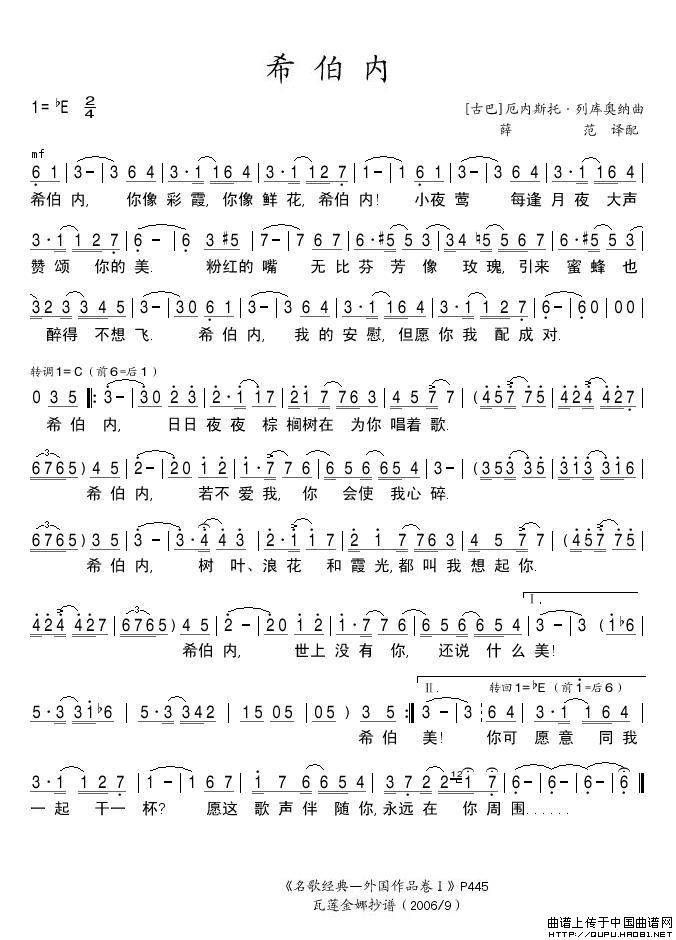 希伯内
1=♭E 2/4
[古巴]厄内斯托·列库奥纳曲
薛 范 译配
mf
6 1 | 3 – | 3 6 4 | 3·1 1 6 4 | 3·1 1 2 7 | 1 – | 1 6 1 | 3 – | 3 6 4 | 3·1 1 6 4 |
希伯 内, 你像 彩 霞, 你像 鲜 花, 希伯 内! 小夜 莺 每逢 月 夜 大声
3·1 1 2 7 | 6 – | 6 3 #5 | 7 – | 7 6 7 | 6·#5 5 3 | 3 4 ♮5 5 6 7 | 6·#5 5 3 |
赞颂 你的 美. 粉红的 嘴 无 比 芬 芳 像 玫 瑰, 引来 蜜 蜂 也
3 2 3 3 4 5 | 3 – | 3 0 6 1 | 3 – | 3 6 4 | 3·1 1 6 4 | 3·1 1 2 7 | 6 – | 6 0 | 0 0 |
醉得 不想 飞. 希 伯 内, 我 的 安 慰, 但愿 你 我 配 成 对.
转调1=C(前6=后1)
0 3 5 ‖: 3 – | 3 0 2 3 | 2·1 1 7 | 2 1 7 7 6 3 | 4 5 7 7 | (4 5 7 7 5 | 4 2 4 4 2 7 |
希 伯 内, 日日 夜 夜 棕 榈树在 为你 唱着 歌.
6 7 6 5) 4 5 | 2 – | 2 0 1 2 | 1·7 7 6 | 6 5 6 6 5 4 | 3 – | (3 5 3 3 5 | 3 1 3 3 1 6 |
希 伯 内, 若不 爱 我, 你 会使 我心 碎.
6 7 6 5) 3 5 | 3 – | 3·4 4 3 | 2·1 1 7 | 2 1 7 7 6 3 | 4 5 7 7 | (4 5 7 7 5 |
希 伯 内, 树 叶、浪 花 和 霞 光, 都 叫 我 想 起 你.
4 2 4 4 2 7 | 6 7 6 5) 4 5 | 2 – | 2 0 1 2 | 1·7 7 6 | 6 5 6 6 5 4 | Ⅰ. 3 – | 3 – (1 ♭6 |
希伯 内, 世上 没 有 你, 还说 什 么 美!
Ⅱ. 转回1=♭E(前1=后6)
5·3 3 1 ♭6 | 5·3 3 4 2 | 1 5 0 5 | 0 5) 3 5 :‖ 3 – | 3 6 4 | 3·1 1 6 4 |
希 伯 美! 你可 愿 意 同 我
3·1 1 2 7 | 1 – | 1 6 7 | 1 6 6 5 4 | 3 7 2 2·12 1 7 | 6 – | 6 – | 6 – | 6 ‖
一 起 干一 杯? 愿这 歌 声 伴 随 你, 永远 在 你 周 围......
《名歌经典—外国作品卷Ⅰ》P445
瓦莲金娜抄谱(2006/9)
曲谱上传于中国曲谱网
http://QUPU.HAO81.NET